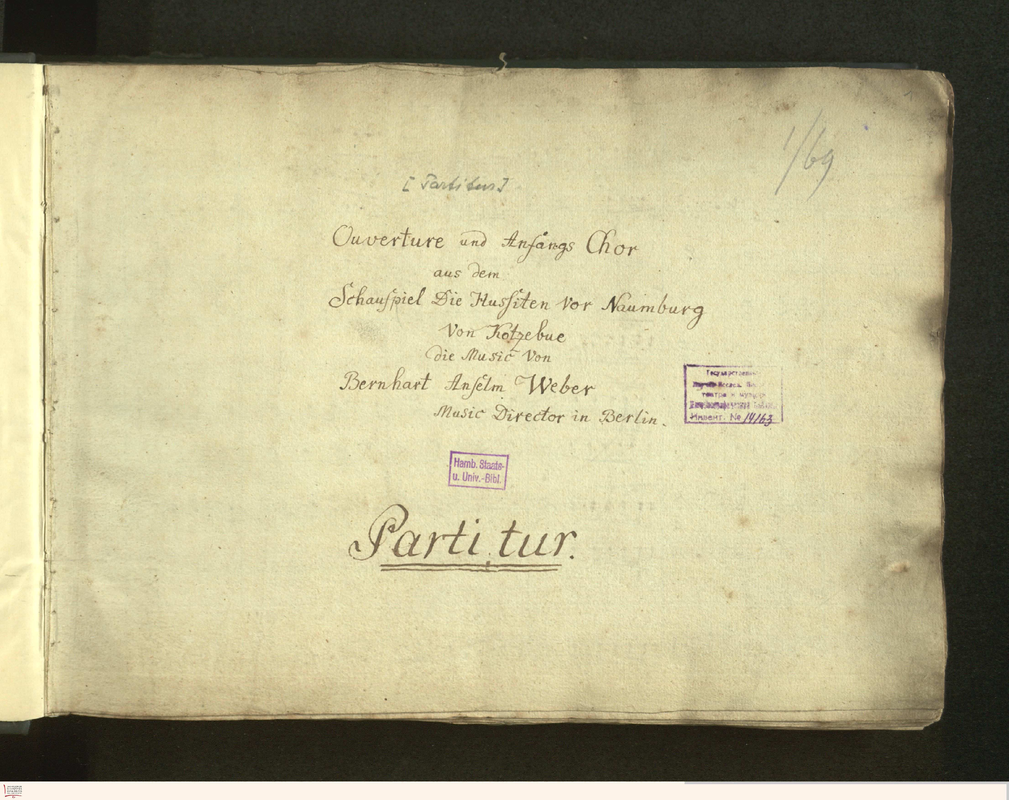 1/69
[Partitur]
Ouverture und Anfangs Chor
aus dem
Schauspiel Die Hussiten vor Naumburg
von Kotzebue
die Music von
Bernhart Anselm Weber
Music Director in Berlin.
Hamb. Staats-
u. Univ.-Bibl.
театра и музыки
Инвент. № 14163
Partitur.